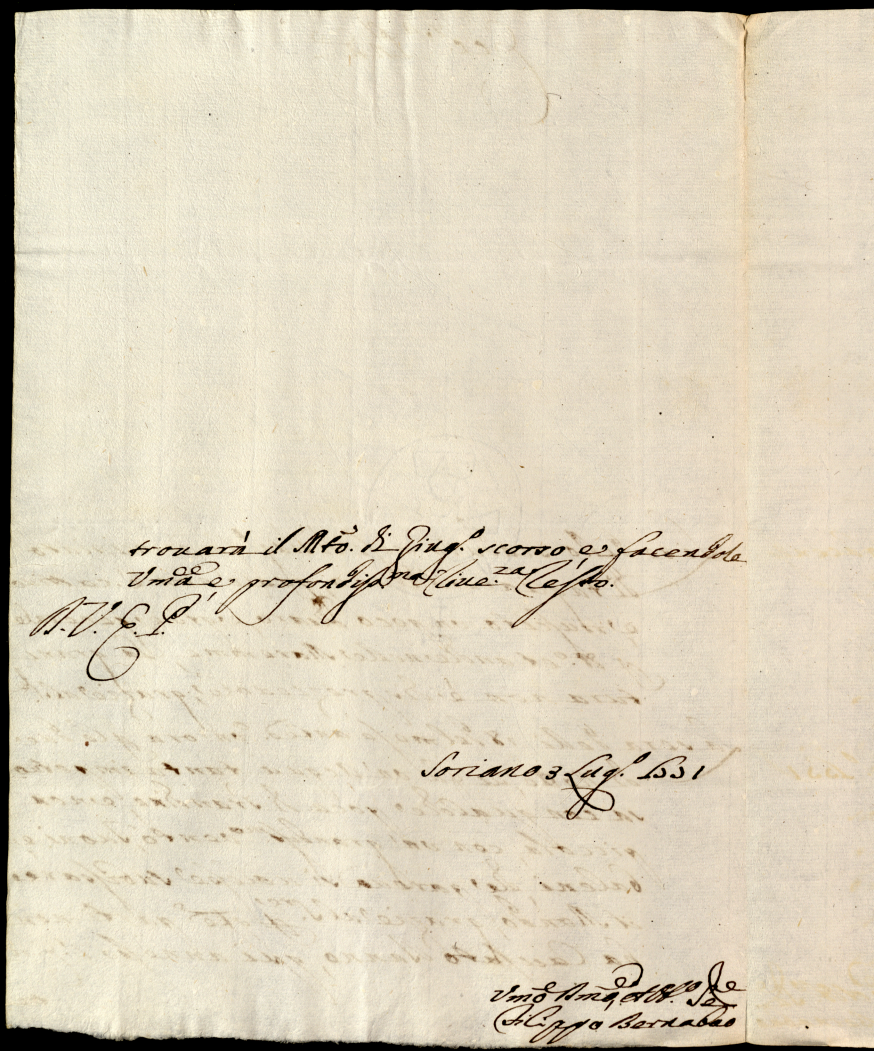 trovarà il Mto. di Giug.o scorso e facendole
Vm.a e profondiss.ma River.za Resto.
D. V. E. P.
Soriano 3 Lug.o 1551
Vmo Dmo, et Obl.o Se.re
Filippo Bernabeo